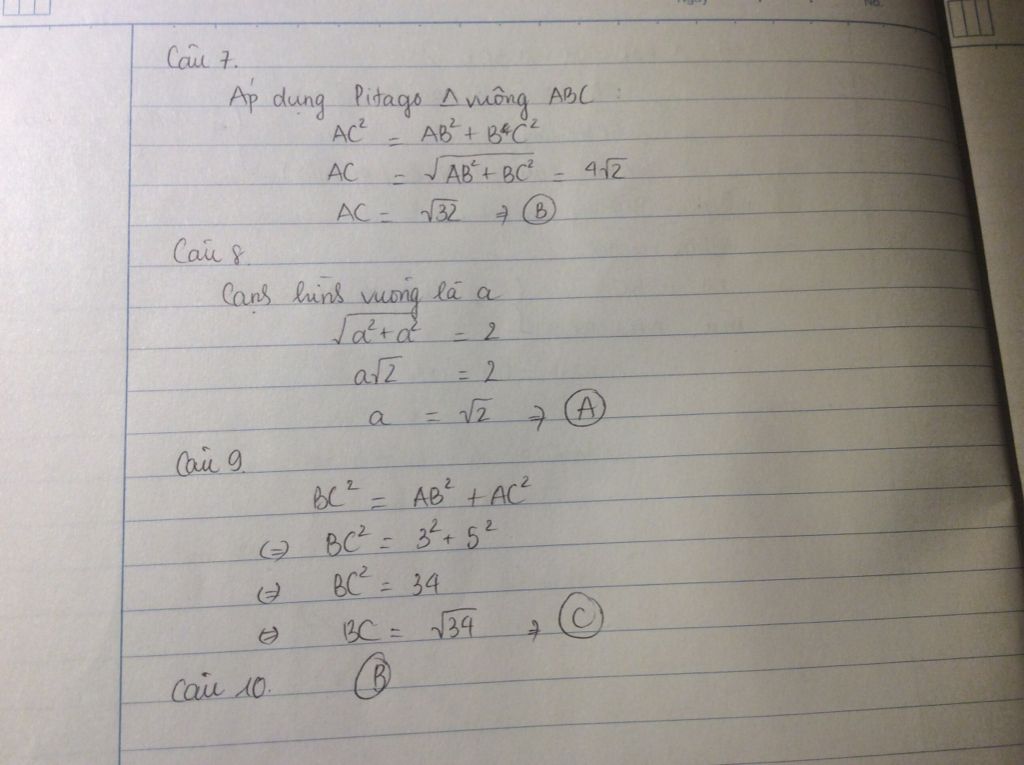 Câu 7.
Áp dụng Pitago Δ vuông ABC :
AC² = AB² + BC²
AC = √(AB² + BC²) = 4√2
AC = √32 ⇒ B
Câu 8
Cạnh hình vuông là a
√(a² + a²) = 2
a√2 = 2
a = √2 ⇒ A
Câu 9
BC² = AB² + AC²
⇔ BC² = 3² + 5²
⇔ BC² = 34
⇔ BC = √34 ⇒ C
Câu 10. B